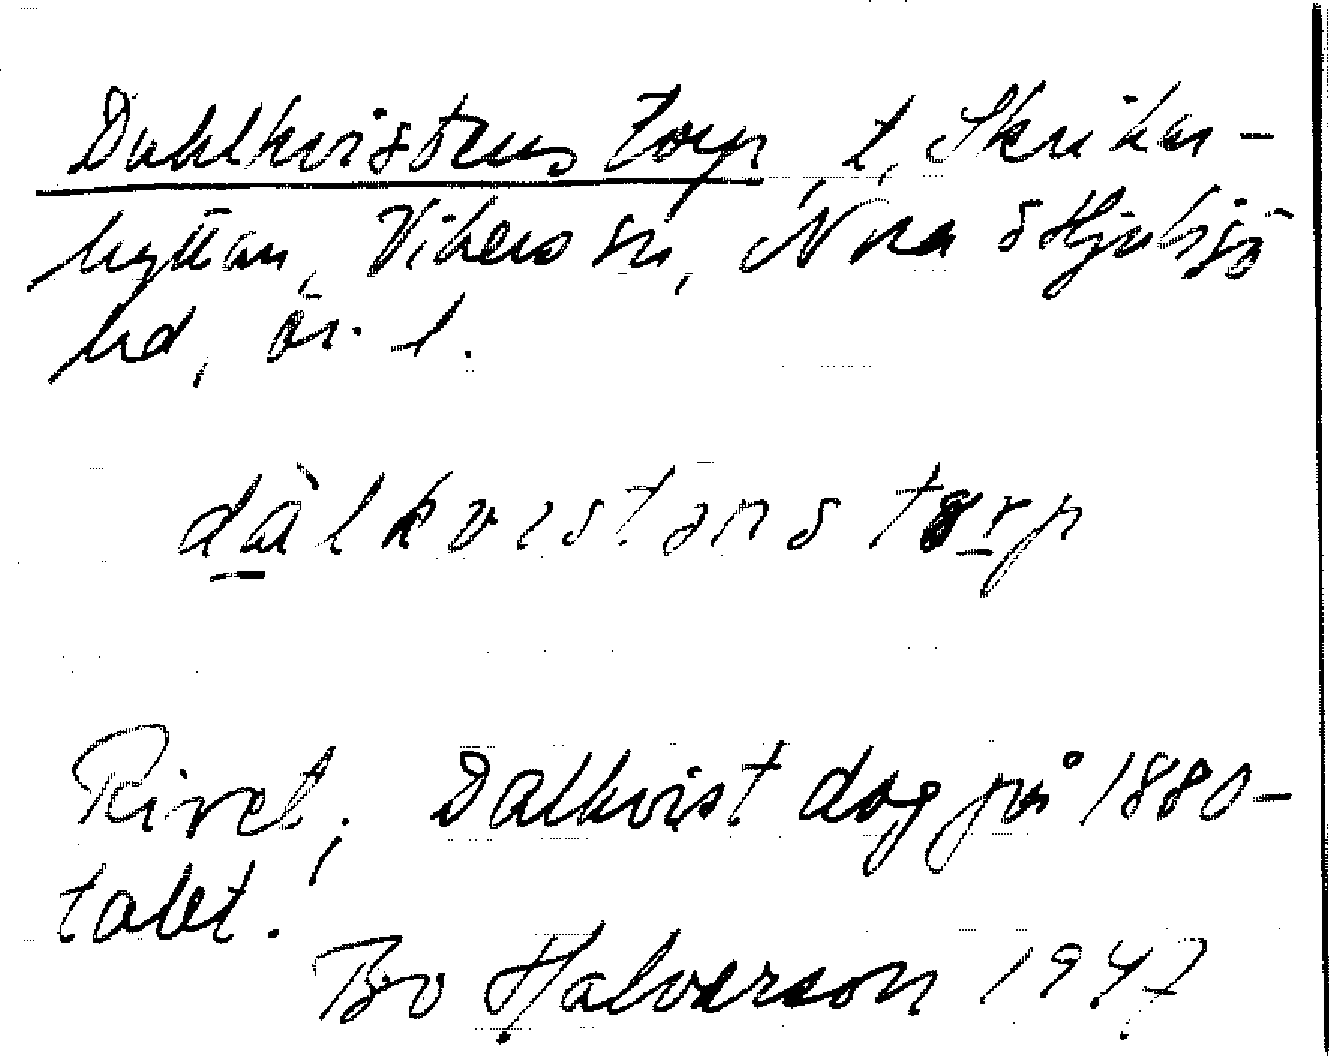 Dahlkvistens torp, t, Skrikar-
hyttan, Vikers sn, Nora o Hjulsjö
hd, ör. l.
dàlkvistəns torp
Rivet, Dalkvist dog på 1880-
talet.
Bo Halvarson 1947